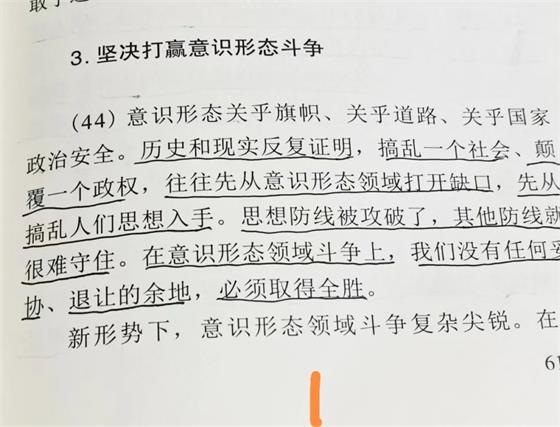 3. 坚决打赢意识形态斗争
(44) 意识形态关乎旗帜、关乎道路、关乎国家
政治安全。历史和现实反复证明，搞乱一个社会、颠
覆一个政权，往往先从意识形态领域打开缺口，先从
搞乱人们思想入手。思想防线被攻破了，其他防线就
很难守住。在意识形态领域斗争上，我们没有任何妥
协、退让的余地，必须取得全胜。
新形势下，意识形态领域斗争复杂尖锐。在
61